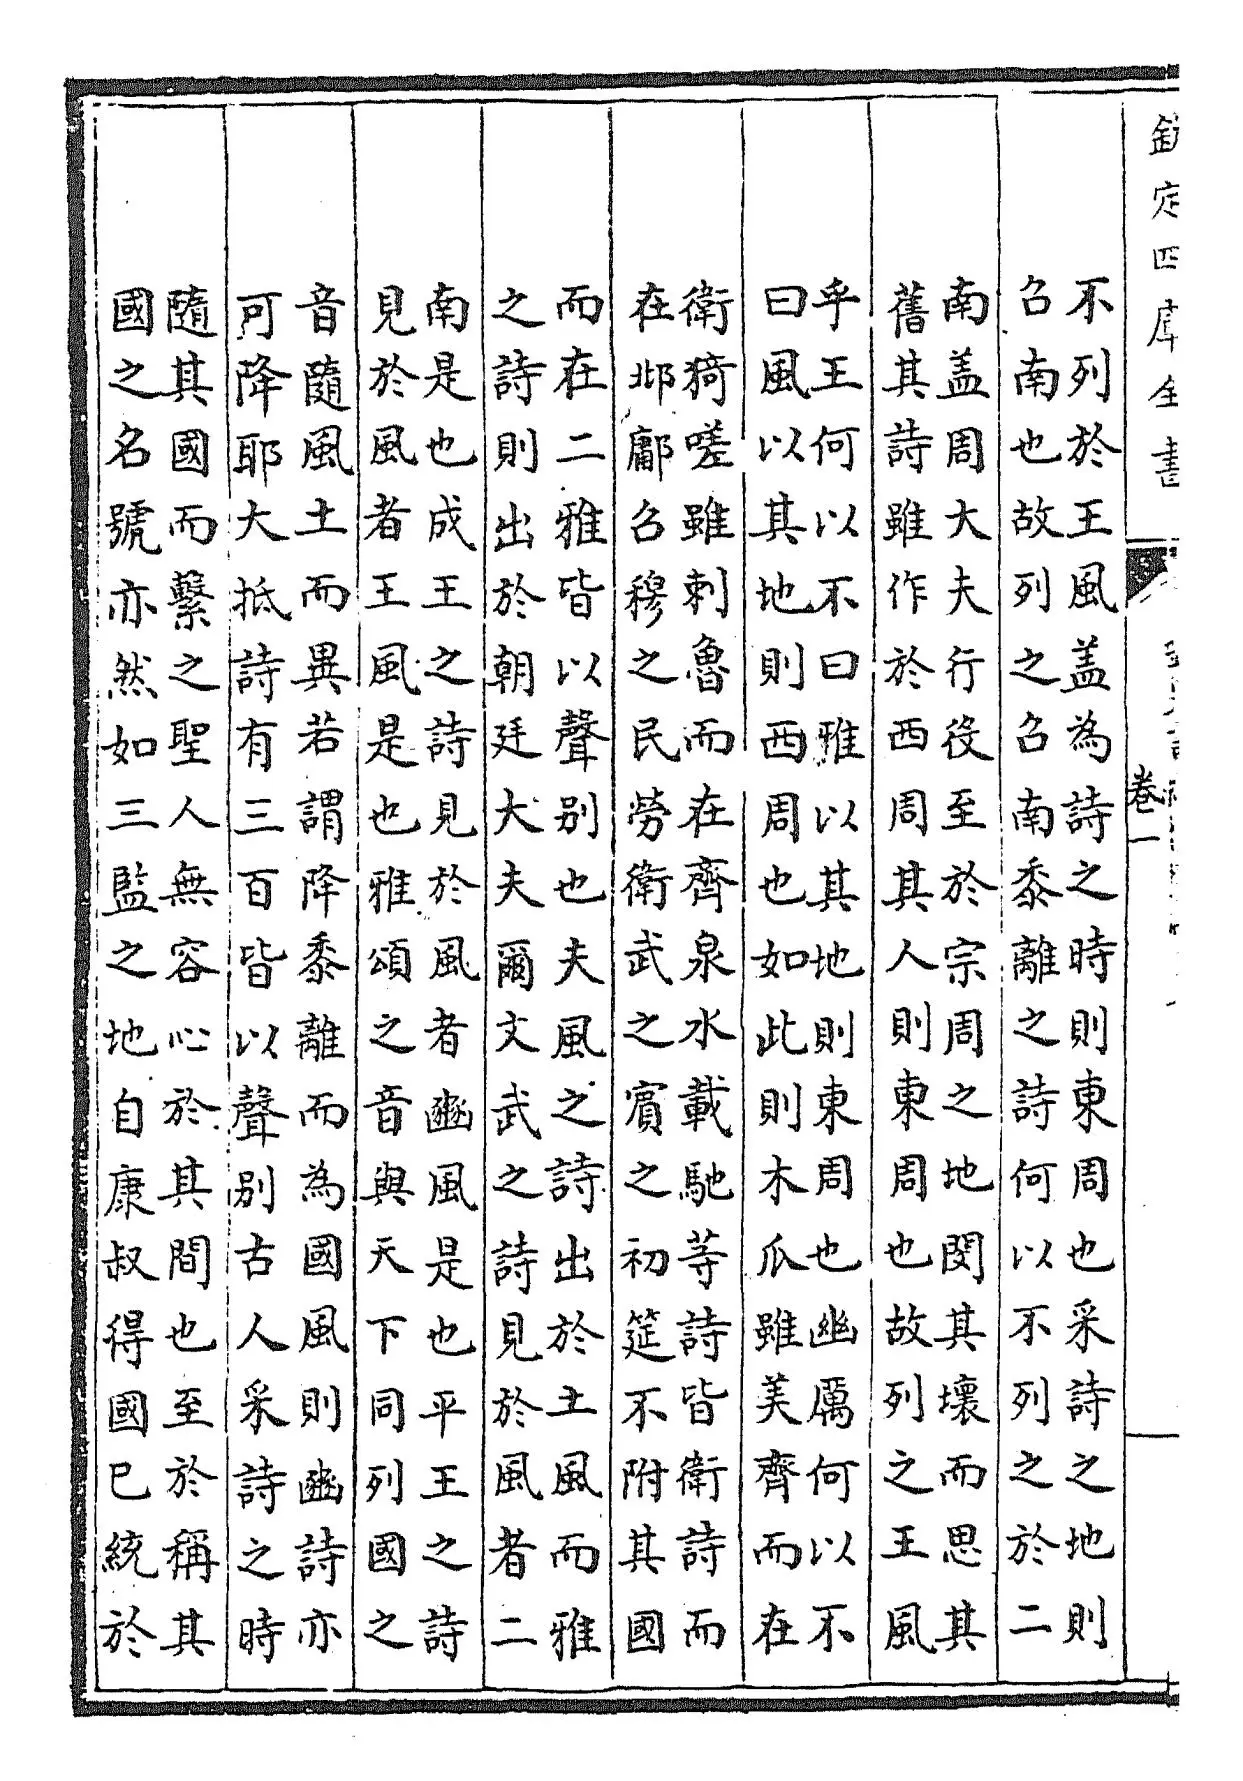 欽定四庫全書
卷一
不列於王風盖為詩之時則東周也采詩之地則
召南也故列之召南黍離之詩何以不列之於二
南盖周大夫行役至於宗周之地閔其壞而思其
舊其詩雖作於西周其人則東周也故列之王風
乎王何以不曰雅以其地則東周也幽厲何以不
曰風以其地則西周也如此則木瓜雖美齊而在
衛猗嗟雖刺魯而在齊泉水載馳等詩皆衛詩而
在邶鄘召穆之民勞衛武之賓之初筵不附其國
而在二雅皆以聲别也夫風之詩出於土風而雅
之詩則出於朝廷大夫爾文武之詩見於風者二
南是也成王之詩見於風者豳風是也平王之詩
見於風者王風是也雅頌之音與天下同列國之
音隨風土而異若謂降黍離而為國風則豳詩亦
可降耶大抵詩有三百皆以聲别古人采詩之時
隨其國而繫之聖人無容心於其間也至於稱其
國之名號亦然如三監之地自康叔得國已統於